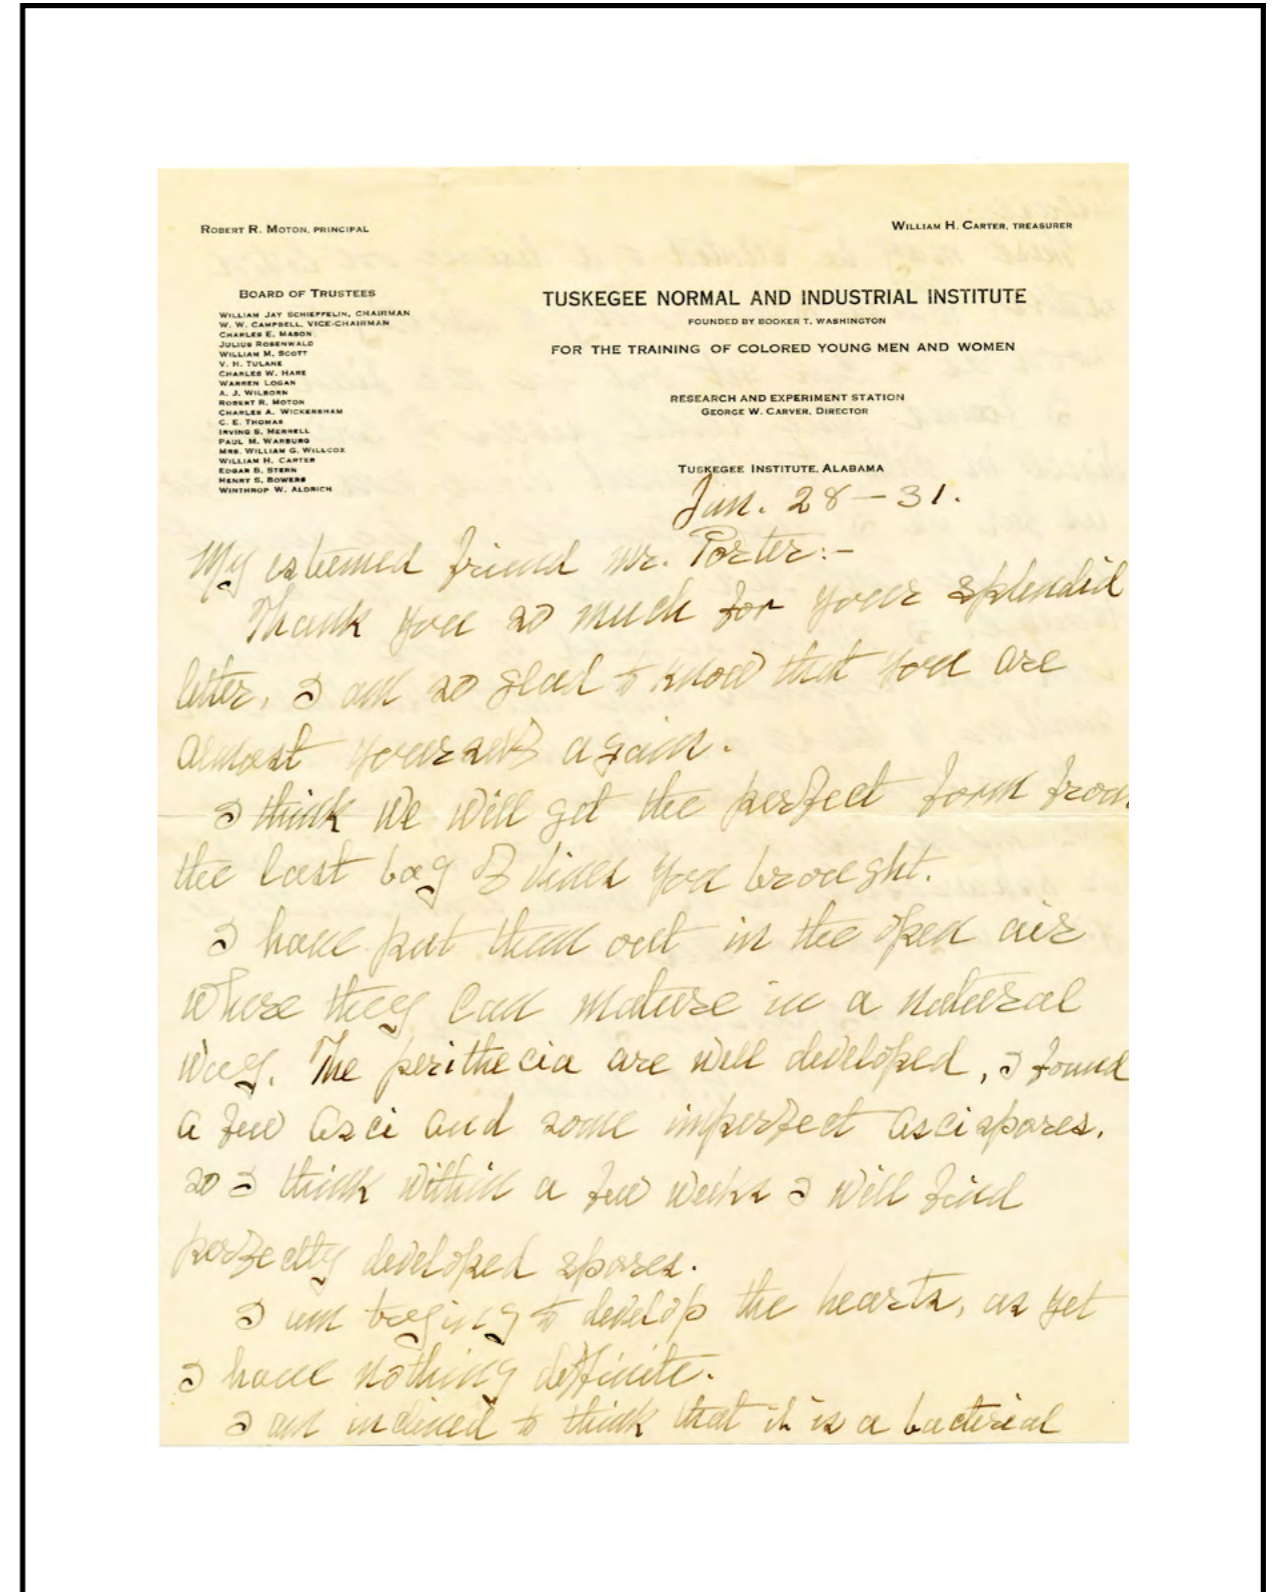 ROBERT R. MOTON, PRINCIPAL
WILLIAM H. CARTER, TREASURER
BOARD OF TRUSTEES
WILLIAM JAY SCHIEFFELIN, CHAIRMAN
W. W. CAMPBELL, VICE-CHAIRMAN
CHARLES E. MASON
JULIUS ROSENWALD
WILLIAM M. SCOTT
V. H. TULANE
CHARLES W. HARE
WARREN LOGAN
A. J. WILBORN
ROBERT R. MOTON
CHARLES A. WICKERSHAM
C. E. THOMAS
IRVING S. MERRELL
PAUL M. WARBURG
MRS. WILLIAM G. WILLCOX
WILLIAM H. CARTER
EDGAR B. STERN
HENRY S. BOWERS
WINTHROP W. ALDRICH
TUSKEGEE NORMAL AND INDUSTRIAL INSTITUTE
FOUNDED BY BOOKER T. WASHINGTON
FOR THE TRAINING OF COLORED YOUNG MEN AND WOMEN
RESEARCH AND EXPERIMENT STATION
GEORGE W. CARVER, DIRECTOR
TUSKEGEE INSTITUTE, ALABAMA
Jan. 28-31.
My esteemed friend Mr. Porter:-
Thank you so much for your splendid
letter, I am so glad to know that you are
almost yourself again.
I think we will get the perfect form from
the last bag of vines you brought.
I have put them out in the open air
where they can mature in a natural
way. The perithecia are well developed, I found
a few asci and some imperfect ascispores.
so I think within a few weeks I will find
perfectly developed spores.
I am to develop the hearts, as yet
I have nothing deffinite.
I am inclined to think that it is a bacterial